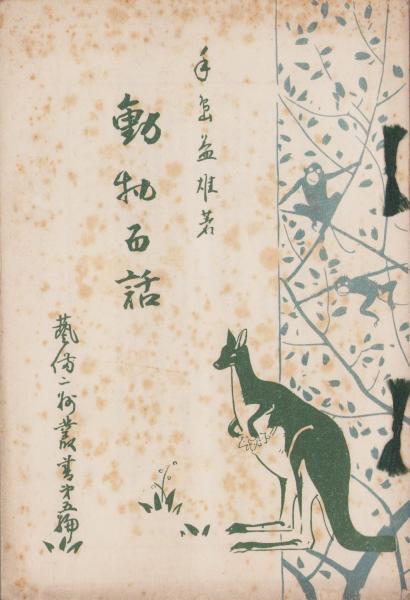 手島益雄著
動物百話
藝備二州叢書第五編